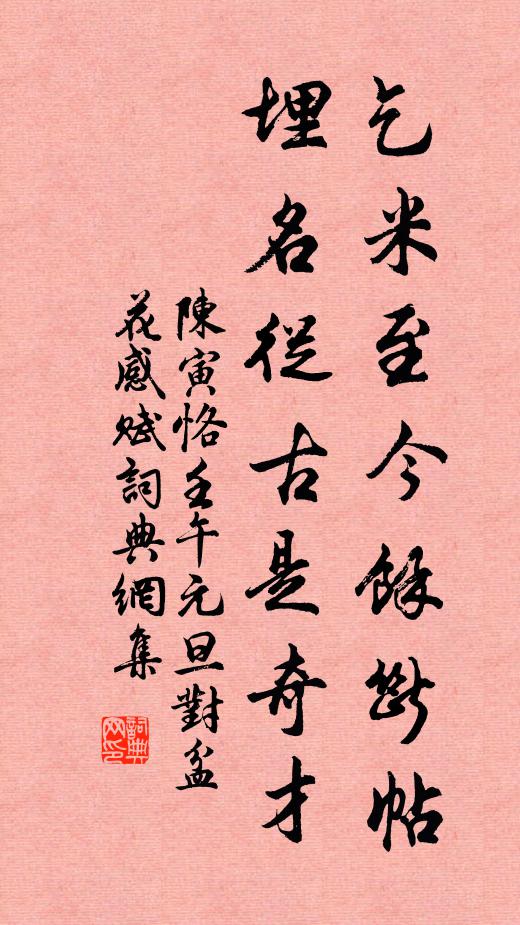 乞米至今餘斷帖
埋名從古是奇才
陳寅恪壬午元旦對盆
花感賦詞典網集
詞典網印